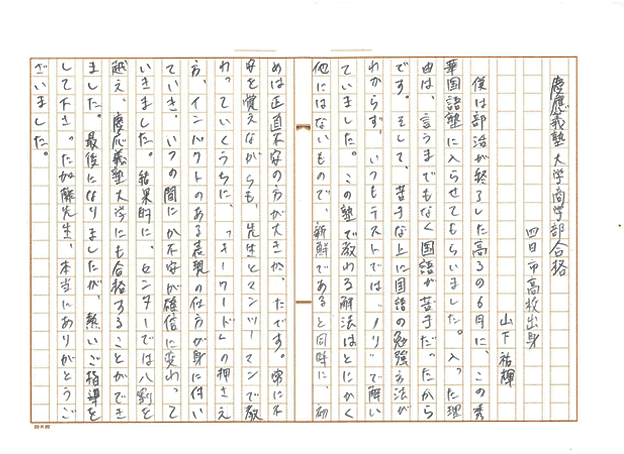 慶應義塾大学商学部合格
四日市高校出身
山下祐輝
僕は部活が終了した高3の6月に、この秀
華国語塾に入らせてもらいました。入った理
由は、言うまでもなく国語が苦手だったから
です。そして、苦手な上に国語の勉強方法が
わからず、いつもテストでは“ノリ”で解い
ていました。この塾で教わる解法はとにかく
他にはないもので、新鮮であると同時に、初
めは正直不安の方が大きかったです。常に不
安を覚えながらも、先生とマンツーマンで教
わっていくうちに、“キーワード”の押さえ
方、インパクトのある表現の仕方が身に付い
ていき、いつの間にか不安が確信に変わって
いきました。結果的に、センターでは八割を
越え、慶應義塾大学にも合格することができ
ました。最後になりましたが、熱いご指導を
して下さった加藤先生、本当にありがとうご
ざいました。